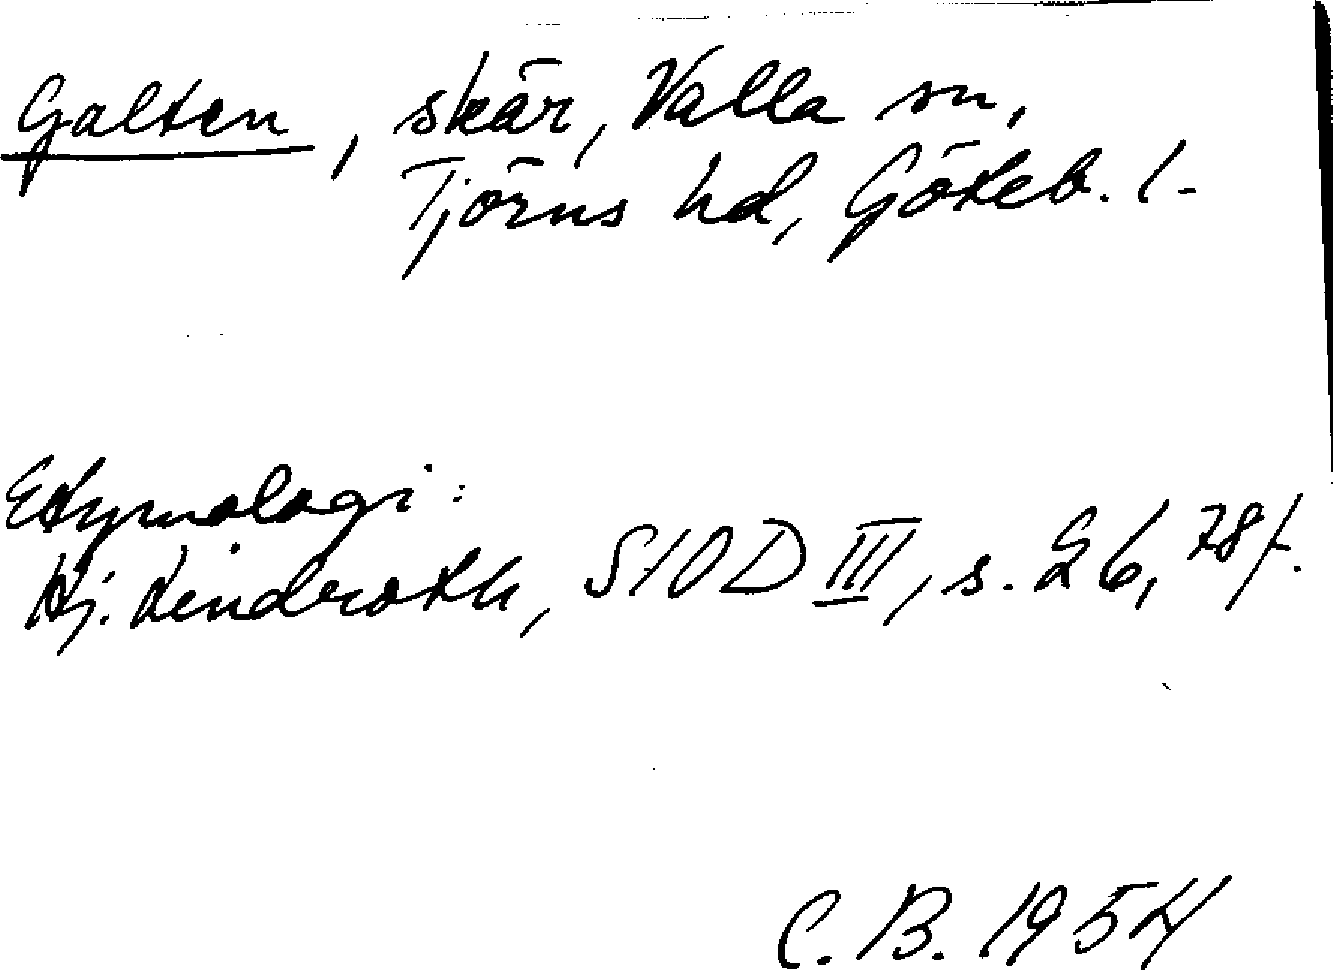 Galten, skär, Valla sn,
Tjörns hd, Göteb. l.
Etymologi:
Hj. Lindroth, SIOD III, s. 26, 78 f.
C. B. 1954